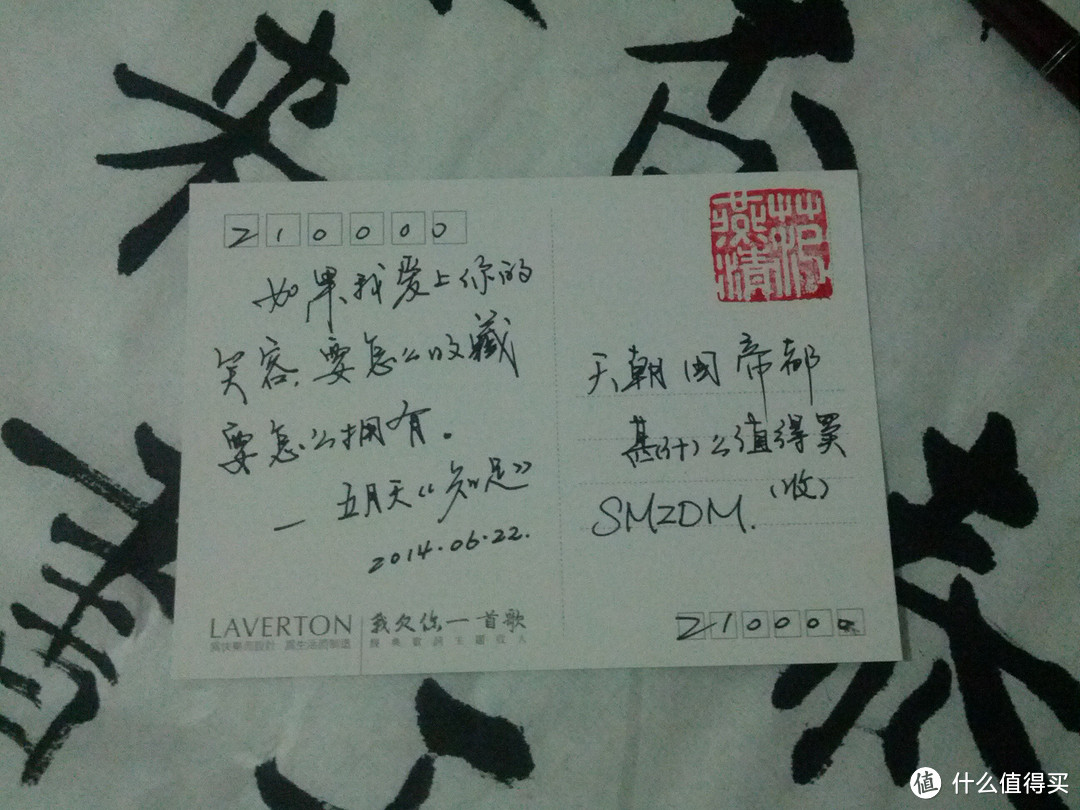 210000
如果我爱上你的
笑容,要怎么收藏
要怎么拥有。
— 五月天《知足》
2014.06.22.
LAVERTON
我欠你一首歌
天朝国帝都
甚(什)么值得买
(收)
SMZDM.
210000
值 什么值得买